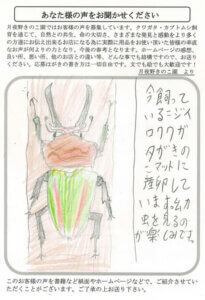 あなた様の声をお聞かせください
月夜野きのこ園ではお客様の声を募集しています。クワガタ・カブトムシ飼
育を通じて、自然との共生、命の大切さ、さまざまな発見と感動をより多く
の方達にお伝え出来るお店になる為に実際に用品をお使い頂いた皆様の率直
なお声が何よりの力となり、今後の参考となります。ホームページの感想、
良い所、悪い所、他のお店との違い等、どんな事でも結構ですので、お送り
下さい。応募はがきの書き方は一切自由です。文でも絵でも大歓迎です！
月夜野きのこ園 より
今飼って
いるニジイ
ロクワガ
タがきの
こマットに
産卵して
います。幼
虫を見るの
が楽しみです。
このお客様の声を書籍など紙面やホームページなどで、ご紹介させてい
ただくことがございます。ご了承の上お送り下さい。